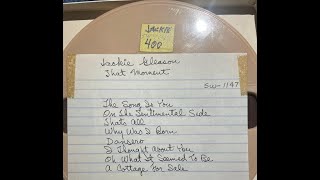 JACKIE
400
Jackie Gleason
That Moment
SW-1147
The Song Is You
On The Sentimental Side
Thats All
Why Was I Born
Dansero
I Thought About You
Oh What It Seemed To Be
A Cottage For Sale